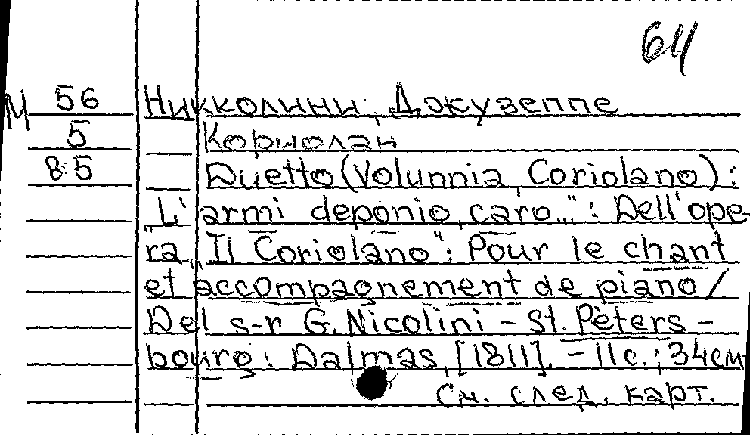 64
М 56 Никколини, Джузеппе
5 Кориолан
85 Duetto (Volunnia, Coriolano):
"L'armi deponio, caro...": Dell'ope
ra "Il Coriolano": Pour le chant
et accompagnement de piano /
Del s-r G. Nicolini - St. Peters-
bourg: Dalmas, [1811]. - 11 с.; 34 см
См. след. карт.